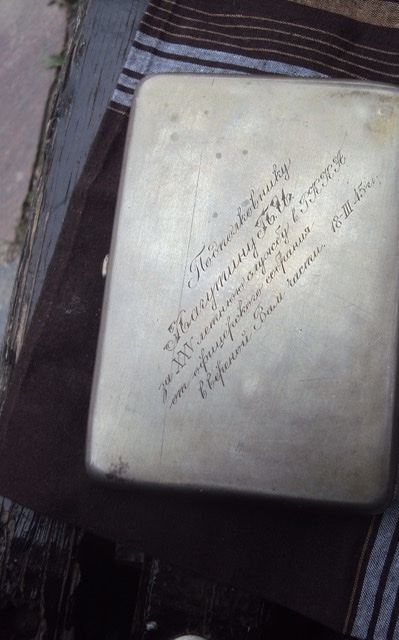 Подполковнику
Лагутину П.И.
за XXV летнюю службу в Г.П.П.А
от офицерского собрания
вверенной Вам части. 18-III-45 г.